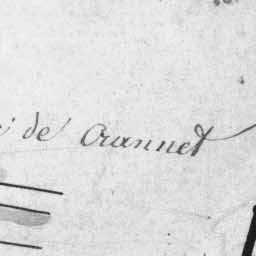 de Crannet